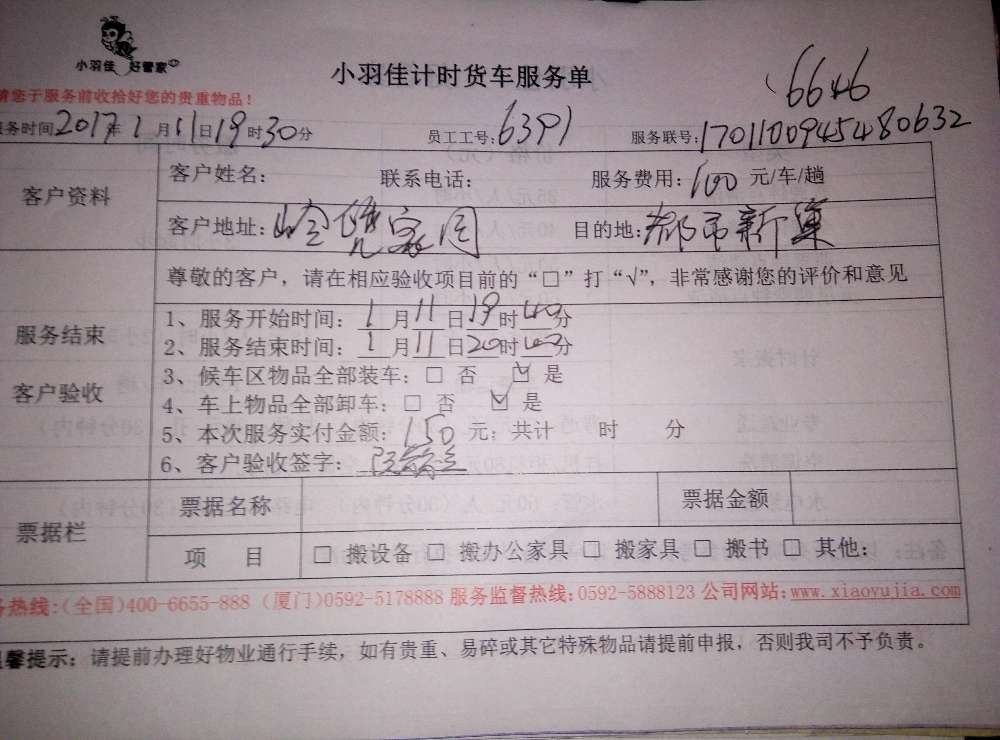 小羽佳 好管家
小羽佳计时货车服务单
6646
请您于服务前收拾好您的贵重物品！
服务时间2017年1月11日19时30分 员工工号：6391 服务联号：1701100945480632
客户资料
客户姓名： 联系电话： 服务费用：100元/车/趟
客户地址：岭兜家园 目的地：都市新巢
尊敬的客户，请在相应验收项目前的“□”打“√”，非常感谢您的评价和意见
服务结束
客户验收
1、服务开始时间：1月11日19时40分
2、服务结束时间：1月11日20时40分
3、候车区物品全部装车：□ 否 ☑ 是
4、车上物品全部卸车：□ 否 ☑ 是
5、本次服务实付金额：150元；共计 时 分
6、客户验收签字：
票据栏
票据名称 票据金额
项 目 □ 搬设备 □ 搬办公家具 □ 搬家具 □ 搬书 □ 其他：
务热线：(全国)400-6655-888 (厦门)0592-5178888 服务监督热线：0592-5888123 公司网站：www.xiaoyujia.com
温馨提示：请提前办理好物业通行手续，如有贵重、易碎或其它特殊物品请提前申报，否则我司不予负责。